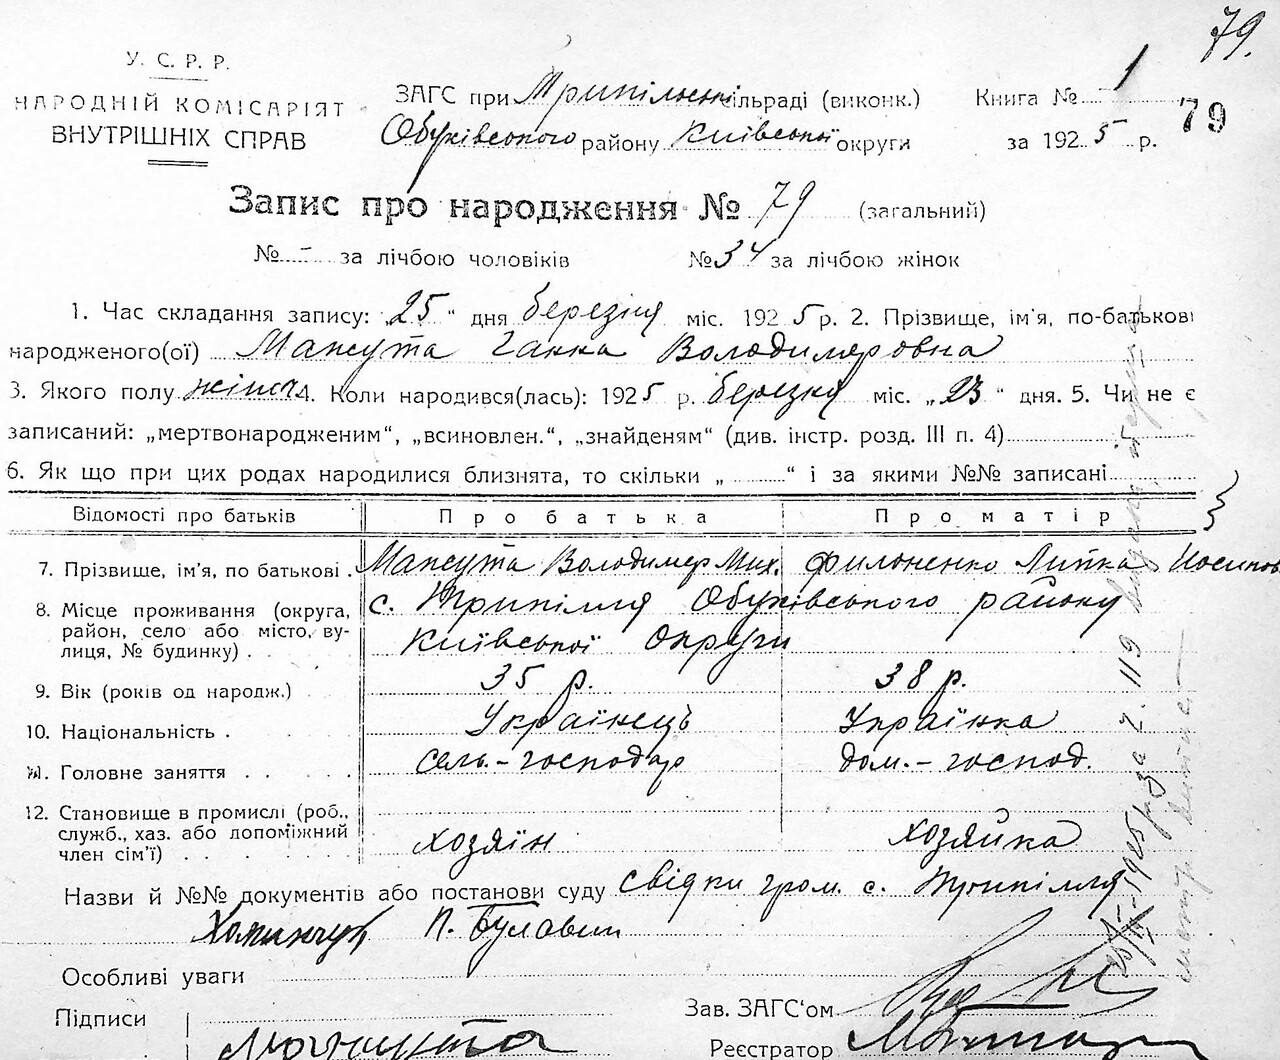 79.
У. С. Р. Р.
НАРОДНІЙ КОМІСАРІЯТ
ВНУТРІШНІХ СПРАВ
ЗАГС при Трипільській сільраді (виконк.)
Обухівського району Київської округи
Книга № 1
за 1925 р.
79
Запис про народження № 79 (загальний)
№ – за лічбою чоловіків № 34 за лічбою жінок
1. Час складання запису: 25 " дня березня міс. 1925 р. 2. Прізвище, ім'я, по-батькові
народженого(ої) Мансута Ганна Володимеровна
3. Якого полу жіноч 4. Коли народився(лась): 1925 р. березня міс. „ 23 " дня. 5. Чи не є
записаний: „мертвонародженим", „всиновлен.", „знайденям" (див. інстр. розд. III п. 4)
6. Як що при цих родах народилися близнята, то скільки „ " і за якими №№ записані
Відомості про батьків Про батька Про матір
7. Прізвище, ім'я, по батькові . Мансута Володимер Мих. Фильоненко Липка Иосипов
8. Місце проживання (округа, район, село або місто, вулиця, № будинку) . с. Трипілля Обухівського району
Київської Округи
9. Вік (років од народж.) 35 р. 38 р.
10. Національність . Українець Українка
11. Головне заняття . . . . . сель.-господар дом.-господ.
12. Становище в промислі (роб., служб., хаз. або допоміжний член сім'ї) . . . . . . . хозяїн хозяйка
Назви й №№ документів або постанови суду свідки гром. с. Трипілля
П. Булавин
Особливі уваги
Підписи
Зав. ЗАГС'ом
Реєстратор